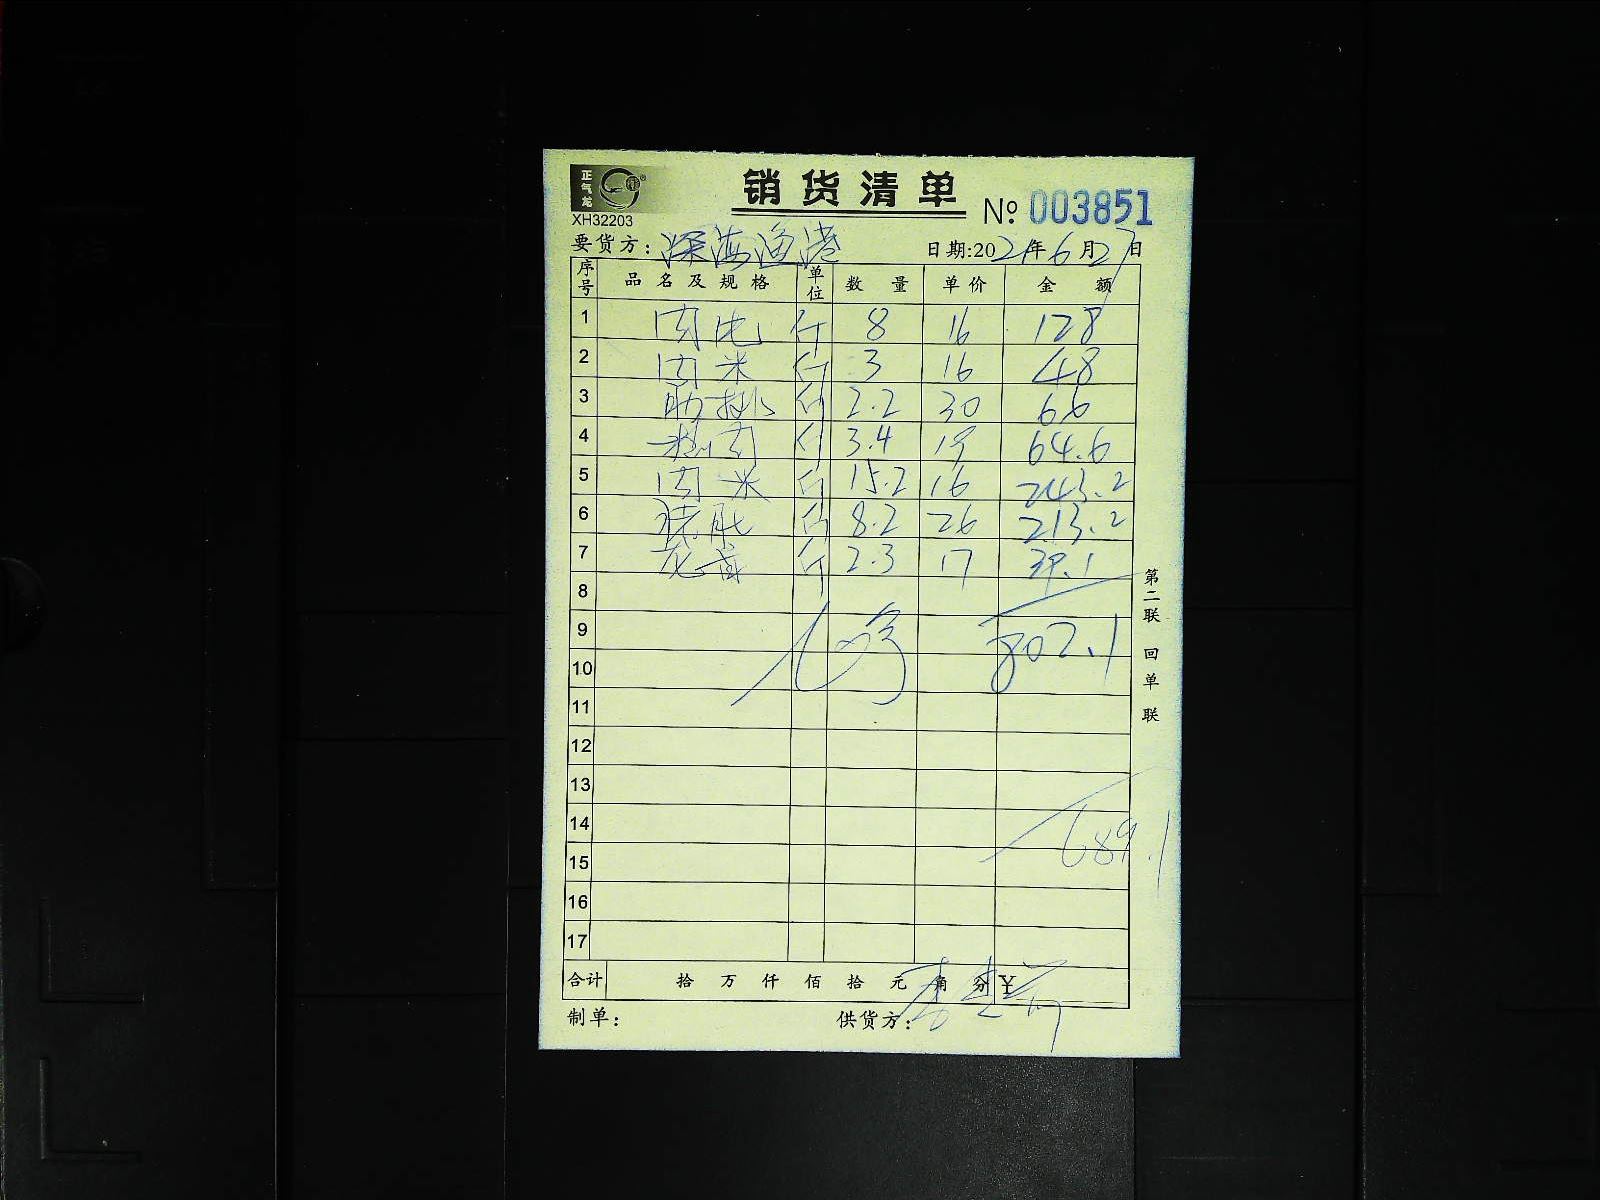 正气龙
XH32203
销货清单
№ 003851
要货方：深海渔港
日期:2021年6月27日
序号 品名及规格 单位 数量 单价 金额
1 斤 8 16 128
2 肉米 斤 3 16 48
3 肋排 斤 2.2 30 66
4 肉 斤 3.4 19 64.6
5 肉米 斤 15.2 16 243.2
6 斤 8.2 26 213.2
7 斤 2.3 17 39.1
8
9 802.1
10
11
12
13
14 689.1
15
16
17
合计 拾 万 仟 佰 拾 元 角 分 ¥
制单：
供货方：
第二联 回单联